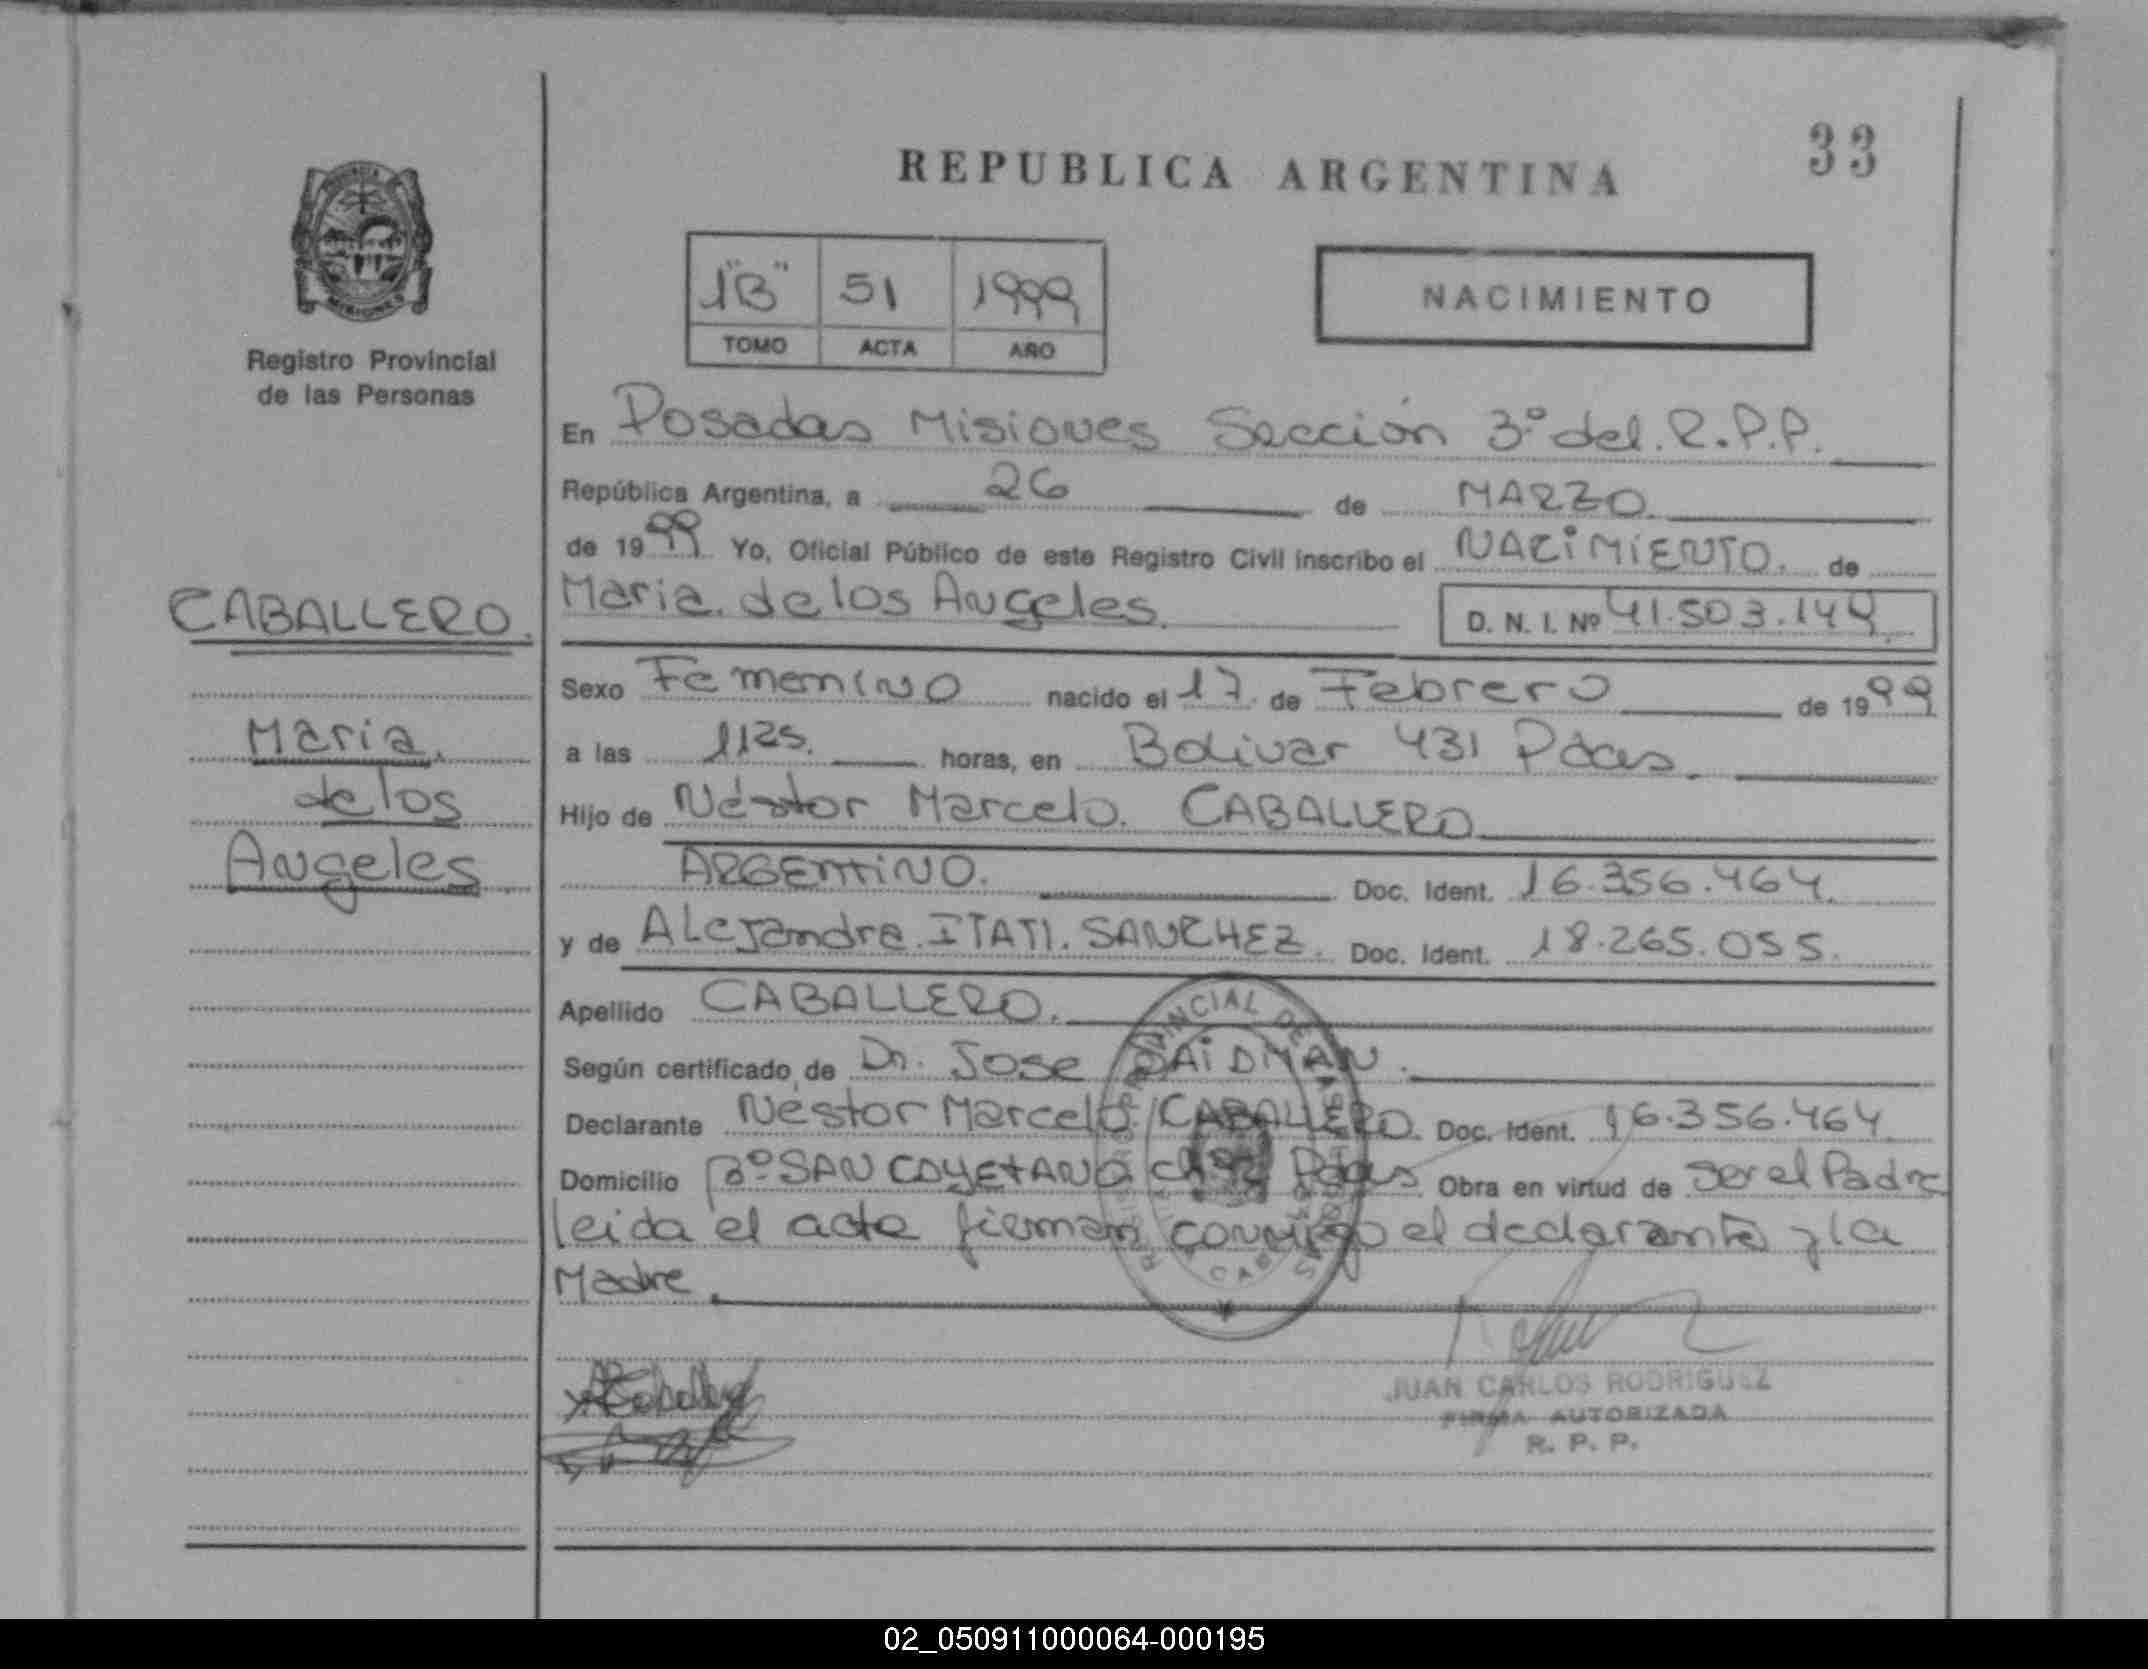 REPUBLICA ARGENTINA
33
1"B" 51 1999
TOMO ACTA AÑO
NACIMIENTO
Registro Provincial
de las Personas
CABALLERO.
Maria
de los
Angeles
En Posadas Misiones Sección 3º del R.P.P.
República Argentina, a 26 de MARZO
de 1999 Yo, Oficial Público de este Registro Civil inscribo el NACIMIENTO. de
Maria de los Angeles. D. N. I. Nº 41.503.149
Sexo Femenino nacido el 17 de Febrero de 1999
a las 1125. horas, en Bolivar 431 Pdas.
Hijo de Néstor Marcelo CABALLERO
ARGENTINO. Doc. Ident. 16.356.464.
y de Alejandra ITATI. SANCHEZ. Doc. Ident. 18.265.055.
Apellido CABALLERO.
Según certificado de Dr. Jose SAIDMAN.
Declarante Néstor Marcelo CABALLERO. Doc. Ident. 16.356.464
Domicilio Bº SAN CAYETANO Pdas Obra en virtud de ser el Padre
leida el acta firman conmigo el declarante y la
Madre.
JUAN CARLOS RODRIGUEZ
FIRMA AUTORIZADA
R. P. P.
02_050911000064-000195